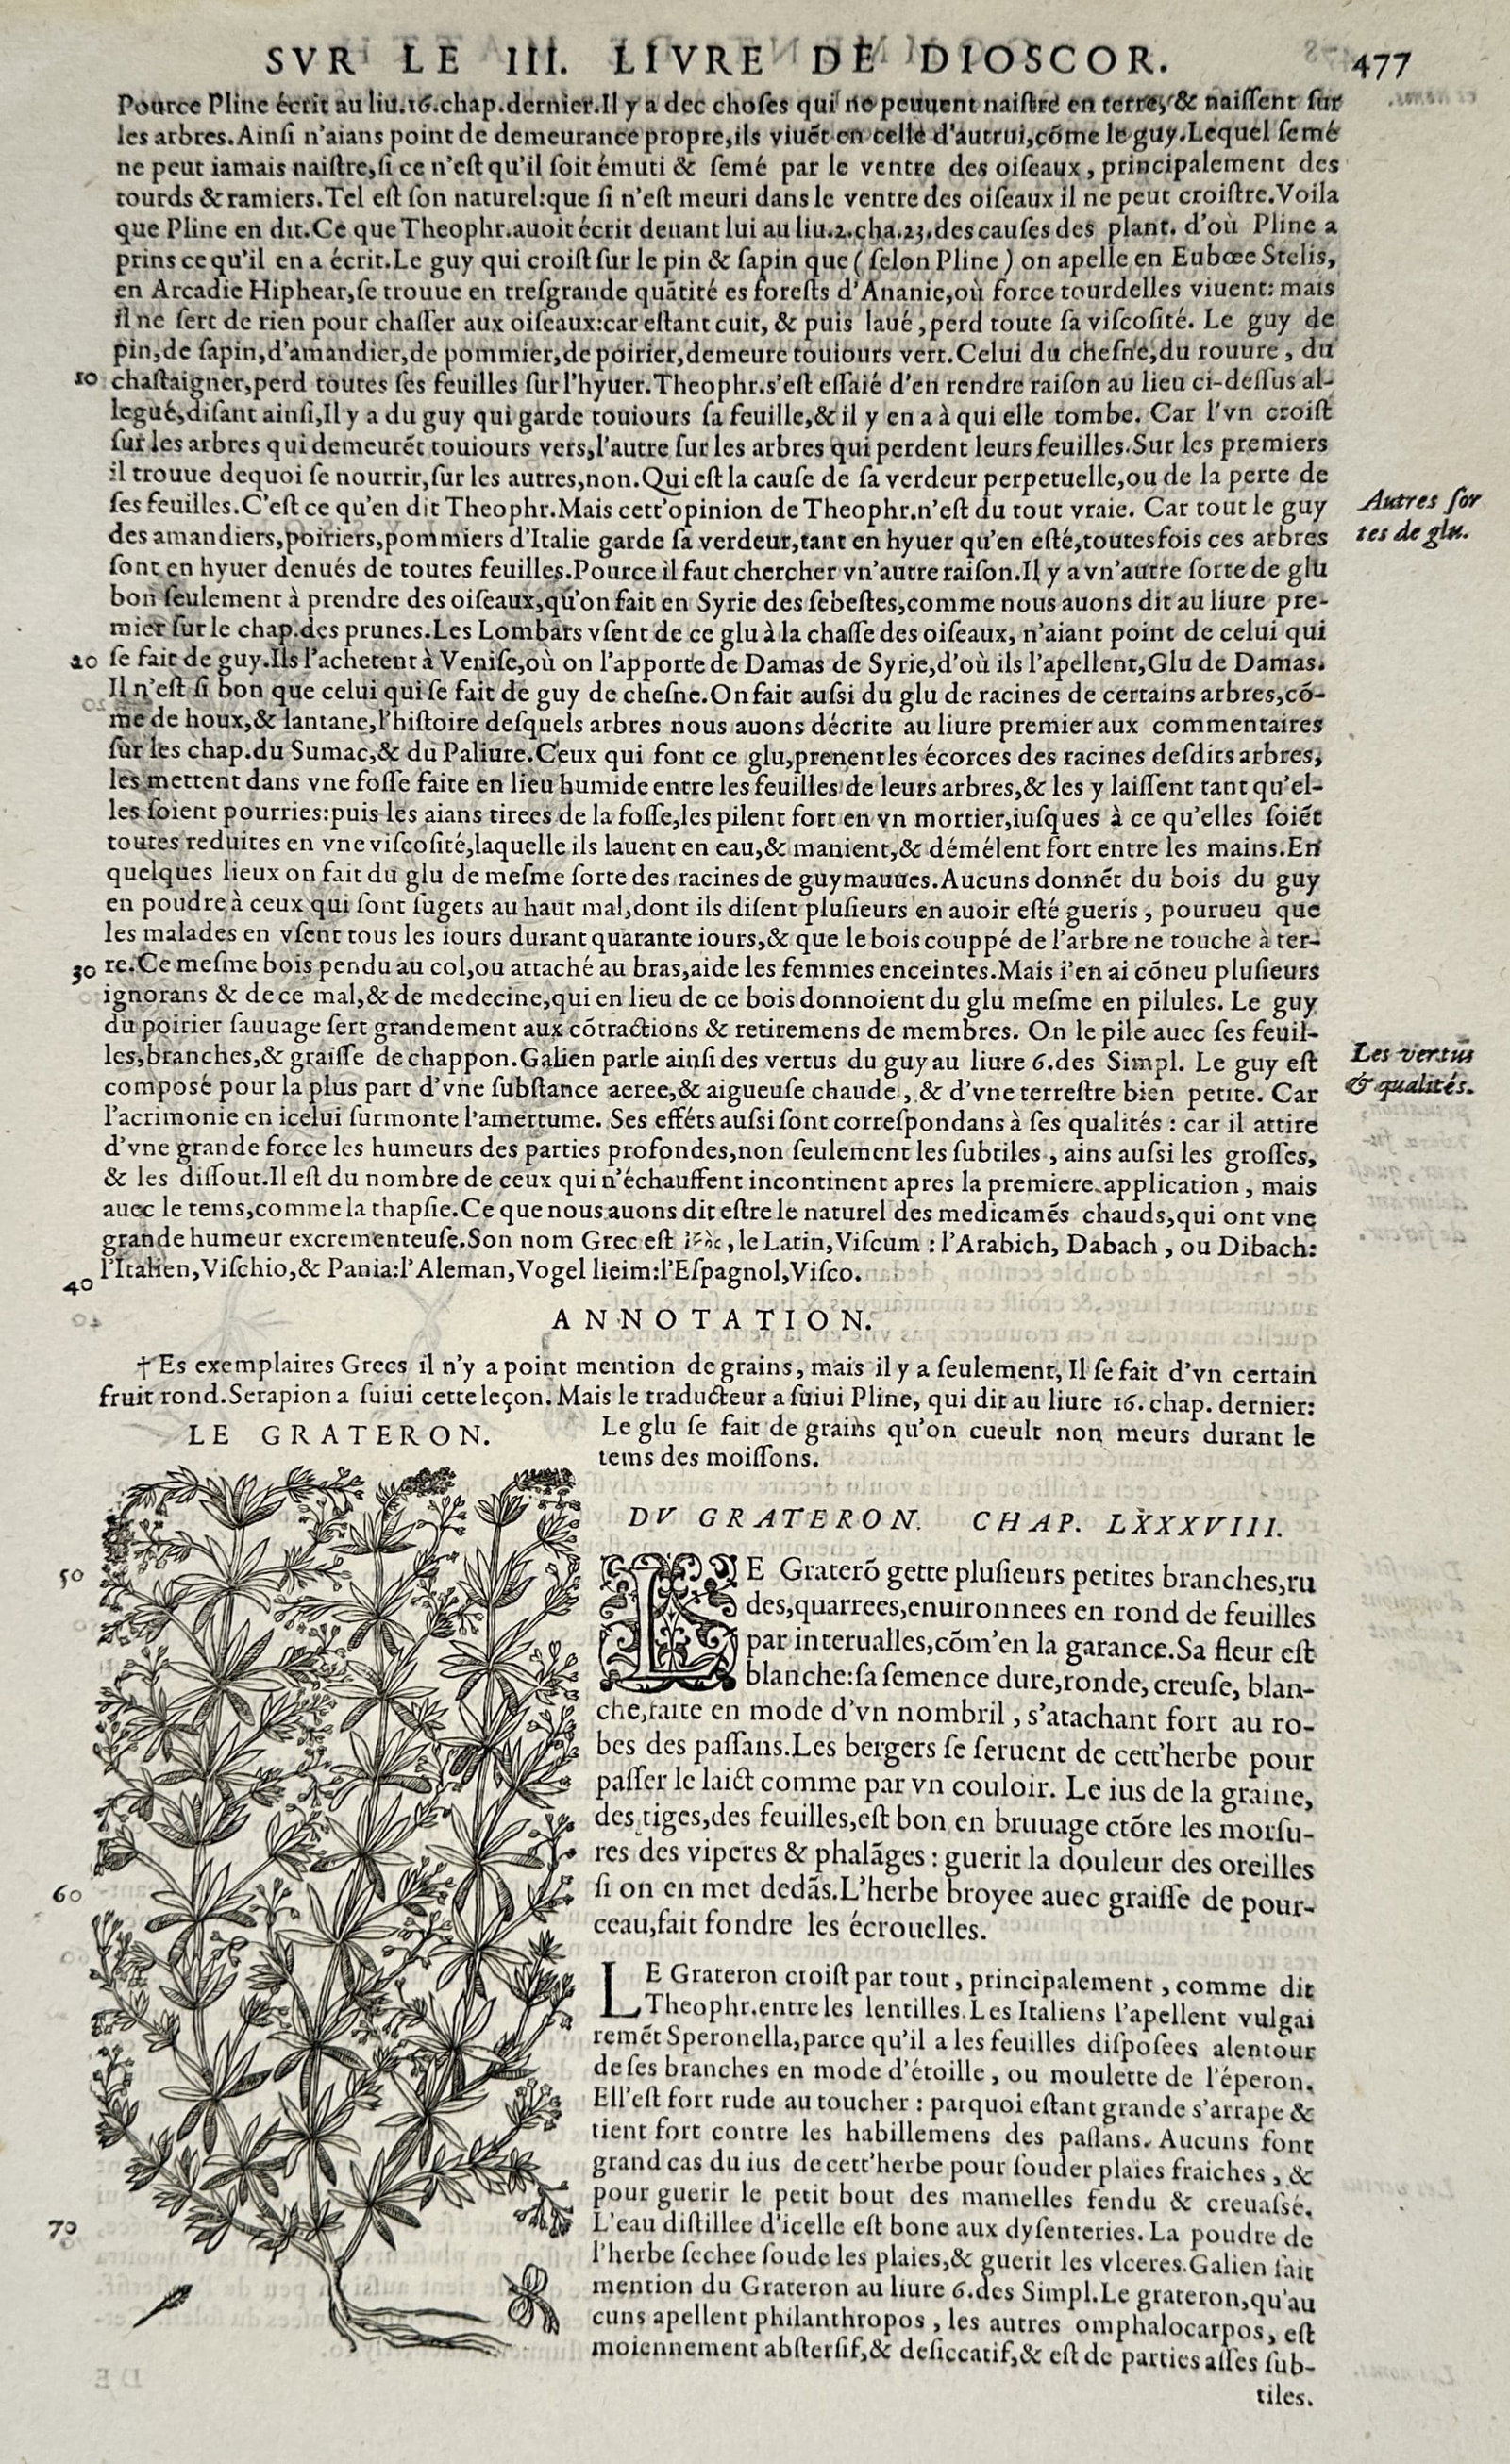 SVR LE III. LIVRE DE DIOSCOR. 477
Pource Pline écrit au liu.16.chap.dernier.Il y a dec choſes qui ne peuuent naiſtre en terre,& naiſſent ſur
les arbres.Ainſi n'aians point de demeurance propre,ils viuẽt en celle d'autrui,cõme le guy.Lequel ſemé
ne peut iamais naiſtre,ſi ce n'eſt qu'il ſoit émuti & ſemé par le ventre des oiſeaux, principalement des
tourds & ramiers.Tel eſt ſon naturel:que ſi n'eſt meuri dans le ventre des oiſeaux il ne peut croiſtre.Voila
que Pline en dit.Ce que Theophr.auoit écrit deuant lui au liu.2.cha.23.des cauſes des plant. d'où Pline a
prins ce qu'il en a écrit.Le guy qui croiſt ſur le pin & ſapin que (ſelon Pline) on apelle en Eubœe Stelis,
en Arcadie Hiphear,ſe trouue en treſgrande quãtité es foreſts d'Ananie,où force tourdelles viuent: mais
il ne ſert de rien pour chaſſer aux oiſeaux:car eſtant cuit, & puis laué, perd toute ſa viſcoſité. Le guy de
pin,de ſapin,d'amandier,de pommier,de poirier,demeure touiours vert.Celui du cheſne,du rouure, du
10 chaſtaigner,perd toutes ſes feuilles ſur l'hyuer.Theophr.s'eſt eſſaié d'en rendre raiſon au lieu ci-deſſus al-
legué,diſant ainſi,Il y a du guy qui garde touiours ſa feuille,& il y en a à qui elle tombe. Car l'vn croiſt
ſur les arbres qui demeurẽt touiours vers,l'autre ſur les arbres qui perdent leurs feuilles.Sur les premiers
il trouue dequoi ſe nourrir,ſur les autres,non.Qui eſt la cauſe de ſa verdeur perpetuelle,ou de la perte de
ſes feuilles.C'eſt ce qu'en dit Theophr.Mais cett'opinion de Theophr.n'eſt du tout vraie. Car tout le guy
Autres ſor
des amandiers,poiriers,pommiers d'Italie garde ſa verdeur,tant en hyuer qu'en eſté,toutesfois ces arbres
tes de glu.
ſont en hyuer denués de toutes feuilles.Pource il faut chercher vn'autre raiſon.Il y a vn'autre ſorte de glu
bon ſeulement à prendre des oiſeaux,qu'on fait en Syrie des ſebeſtes,comme nous auons dit au liure pre-
mier ſur le chap.des prunes.Les Lombars vſent de ce glu à la chaſſe des oiſeaux, n'aiant point de celui qui
20 ſe fait de guy.Ils l'achetent à Veniſe,où on l'apporte de Damas de Syrie,d'où ils l'apellent,Glu de Damas.
Il n'eſt ſi bon que celui qui ſe fait de guy de cheſne.On fait auſsi du glu de racines de certains arbres,cõ-
me de houx,& lantane,l'hiſtoire deſquels arbres nous auons décrite au liure premier aux commentaires
ſur les chap.du Sumac,& du Paliure.Ceux qui font ce glu,prenent les écorces des racines deſdits arbres,
les mettent dans vne foſſe faite en lieu humide entre les feuilles de leurs arbres,& les y laiſſent tant qu'el-
les ſoient pourries:puis les aians tirees de la foſſe,les pilent fort en vn mortier,iuſques à ce qu'elles ſoiẽt
toutes reduites en vne viſcoſité,laquelle ils lauent en eau,& manient,& démélent fort entre les mains.En
quelques lieux on fait du glu de meſme ſorte des racines de guymauues.Aucuns donnẽt du bois du guy
en poudre à ceux qui ſont ſugets au haut mal,dont ils diſent pluſieurs en auoir eſté gueris, pourueu que
les malades en vſent tous les iours durant quarante iours,& que le bois couppé de l'arbre ne touche à ter-
30 re.Ce meſme bois pendu au col,ou attaché au bras,aide les femmes enceintes.Mais i'en ai cõneu pluſieurs
ignorans & de ce mal,& de medecine,qui en lieu de ce bois donnoient du glu meſme en pilules. Le guy
du poirier ſauuage ſert grandement aux cõtractions & retiremens de membres. On le pile auec ſes feuil-
les,branches,& graiſſe de chappon.Galien parle ainſi des vertus du guy au liure 6.des Simpl. Le guy eſt
Les vertus
compoſé pour la plus part d'vne ſubſtance aeree,& aigueuſe chaude, & d'vne terreſtre bien petite. Car
& qualités.
l'acrimonie en icelui ſurmonte l'amertume. Ses efféts auſsi ſont correſpondans à ſes qualités: car il attire
d'vne grande force les humeurs des parties profondes,non ſeulement les ſubtiles, ains auſsi les groſſes,
& les diſſout.Il eſt du nombre de ceux qui n'échauffent incontinent apres la premiere application, mais
auec le tems,comme la thapſie.Ce que nous auons dit eſtre le naturel des medicamẽs chauds,qui ont vne
grande humeur excrementeuſe.Son nom Grec eſt ἰξὸς, le Latin,Viſcum: l'Arabich, Dabach, ou Dibach:
40 l'Italien,Viſchio,& Pania:l'Aleman,Vogel lieim:l'Eſpagnol,Viſco.
ANNOTATION.
†Es exemplaires Grecs il n'y a point mention de grains, mais il y a ſeulement, Il ſe fait d'vn certain
fruit rond.Serapion a ſuiui cette leçon. Mais le traducteur a ſuiui Pline, qui dit au liure 16. chap. dernier:
Le glu ſe fait de grains qu'on cueult non meurs durant le
tems des moiſſons.
LE GRATERON.
DV GRATERON. CHAP. LXXXVIII.
50
LE Graterõ gette pluſieurs petites branches,ru
des,quarrees,enuironnees en rond de feuilles
par interualles,cõm'en la garance.Sa fleur eſt
blanche:ſa ſemence dure,ronde, creuſe, blan-
che,faite en mode d'vn nombril, s'atachant fort au ro-
bes des paſſans.Les bergers ſe ſeruent de cett'herbe pour
paſſer le laict comme par vn couloir. Le ius de la graine,
des tiges,des feuilles,eſt bon en bruuage ctõre les morſu-
res des viperes & phalãges: guerit la douleur des oreilles
60 ſi on en met dedãs.L'herbe broyee auec graiſſe de pour-
ceau,fait fondre les écrouelles.
LE Grateron croiſt par tout, principalement, comme dit
Theophr.entre les lentilles.Les Italiens l'apellent vulgai
remẽt Speronella,parce qu'il a les feuilles diſpoſees alentour
de ſes branches en mode d'étoille, ou moulette de l'éperon.
Ell'eſt fort rude au toucher: parquoi eſtant grande s'arrape &
tient fort contre les habillemens des paſſans. Aucuns font
grand cas du ius de cett'herbe pour ſouder plaies fraiches, &
pour guerir le petit bout des mamelles fendu & creuaſsé.
70 L'eau diſtillee d'icelle eſt bone aux dyſenteries. La poudre de
l'herbe ſechee ſoude les plaies,& guerit les vlceres.Galien fait
mention du Grateron au liure 6.des Simpl.Le grateron,qu'au
cuns apellent philanthropos, les autres omphalocarpos, eſt
moiennement abſterſif,& deſiccatif,& eſt de parties aſſes ſub-
tiles.